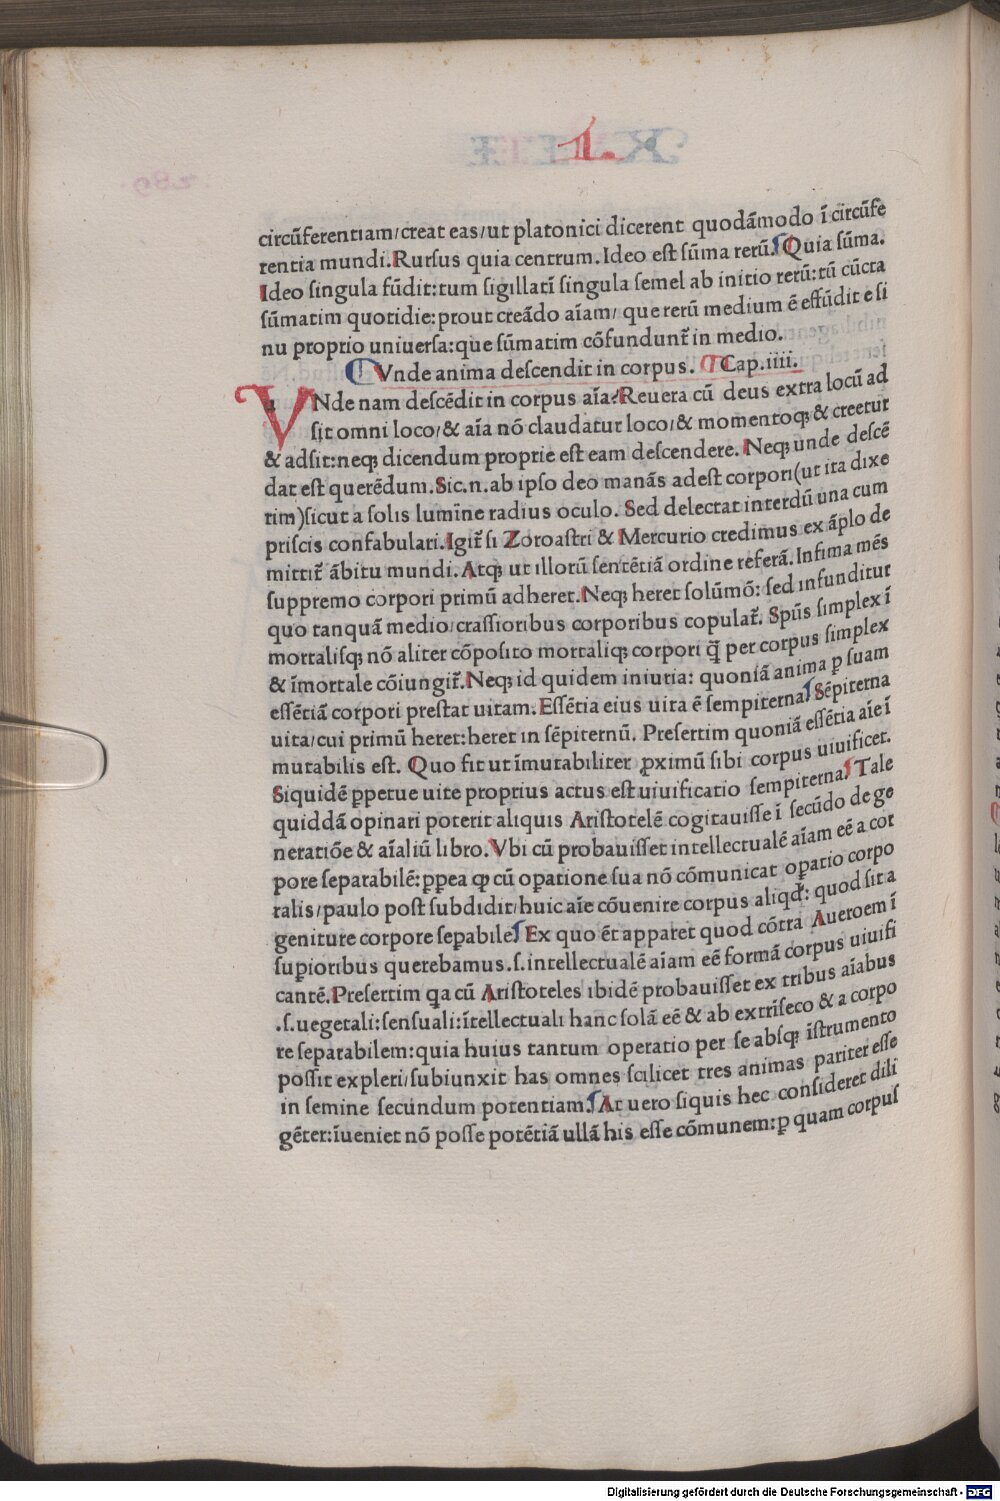 .1.
circũferentiam/creat eas/ut platonici dicerent quodãmodo ĩ circũfe
rentia mundi.Rursus quia centrum.Ideo est sũma rerũ. Quia sũma.
Ideo singula fũdit:tum sigillatĩ singula semel ab initio rerũ:tũ cũcta
sũmatim quotidie:prout creãdo aĩam/ que rerũ medium ẽ effũdit e si
nu proprio uniuersa:que sũmatim cõfundunt᷑ in medio.
Vnde anima descendit in corpus. Cap.iiii.
VNde nam descẽdit in corpus aĩa? Reuera cũ deus extra locũ ad
sit omni loco/& aĩa nõ claudatur loco/& momentoqꝫ & creetur
& adsit:neqꝫ dicendum proprie est eam descendere. Neqꝫ unde descẽ
dat est querẽdum.Sic.n.ab ipso deo manãs adest corpori(ut ita dixe
rim)sicut a solis lumĩne radius oculo. Sed delectat interdũ una cum
priscis confabulari.Igit᷑ si Zoroastri & Mercurio credimus ex ãplo de
mittit᷑ ãbitu mundi.Atqꝫ ut illorũ sentẽtiã ordine referã.Infima mẽs
suppremo corpori primũ adheret.Neqꝫ heret solũmõ: sed infunditur
quo tanquã medio/crassioribus corporibus copulat᷑. Spũs simplex ĩ
mortalisqꝫ nõ aliter cõposito mortaliqꝫ corpori q̃ per corpus simplex
& ĩmortale cõiungit᷑.Neqꝫ id quidem iniutia: quoniã anima ꝑ suam
essẽtiã corpori prestat uitam.Essẽtia eius uita ẽ sempiterna. Sẽpiterna
uita/cui primũ heret:heret in sẽpiternũ. Presertim quoniã essẽtia aĩe ĩ
mutabilis est. Quo fit ut ĩmutabiliter ꝓximũ sibi corpus uiuificet.
Siquidẽ ꝑpetue uite proprius actus est uiuificatio sempiterna. Tale
quiddã opinari poterit aliquis Aristotelẽ cogitauisse ĩ secũdo de ge
neratiõe & aĩaliũ libro.Vbi cũ probauisset intellectualẽ aĩam eẽ a cor
pore separabilẽ:ꝓpea ꝙ cũ oꝑatione sua nõ cõmunicat oꝑatio corpo
ralis/paulo post subdidit/huic aĩe cõuenire corpus aliqđ: quod sit a
geniture corpore seꝑabile. Ex quo ẽt apparet quod cõtra Aueroem ĩ
suꝑioribus querebamus.s.intellectualẽ aĩam eẽ formã corpus uiuifi
cantẽ.Presertim qa cũ Aristoteles ibidẽ probauisset ex tribus aĩabus
.s.uegetali:sensuali:ĩtellectuali hanc solã eẽ & ab extrĩseco & a corpo
re separabilem:quia huius tantum operatio per se absqꝫ ĩstrumento
possit expleri/subiunxit has omnes scilicet tres animas pariter esse
in semine secundum potentiam. At uero siquis hec consideret dili
gẽter:ĩueniet nõ posse potẽtiã ullã his esse cõmunem:ꝑ quam corpus
Digitalisierung gefördert durch die Deutsche Forschungsgemeinschaft - DFG